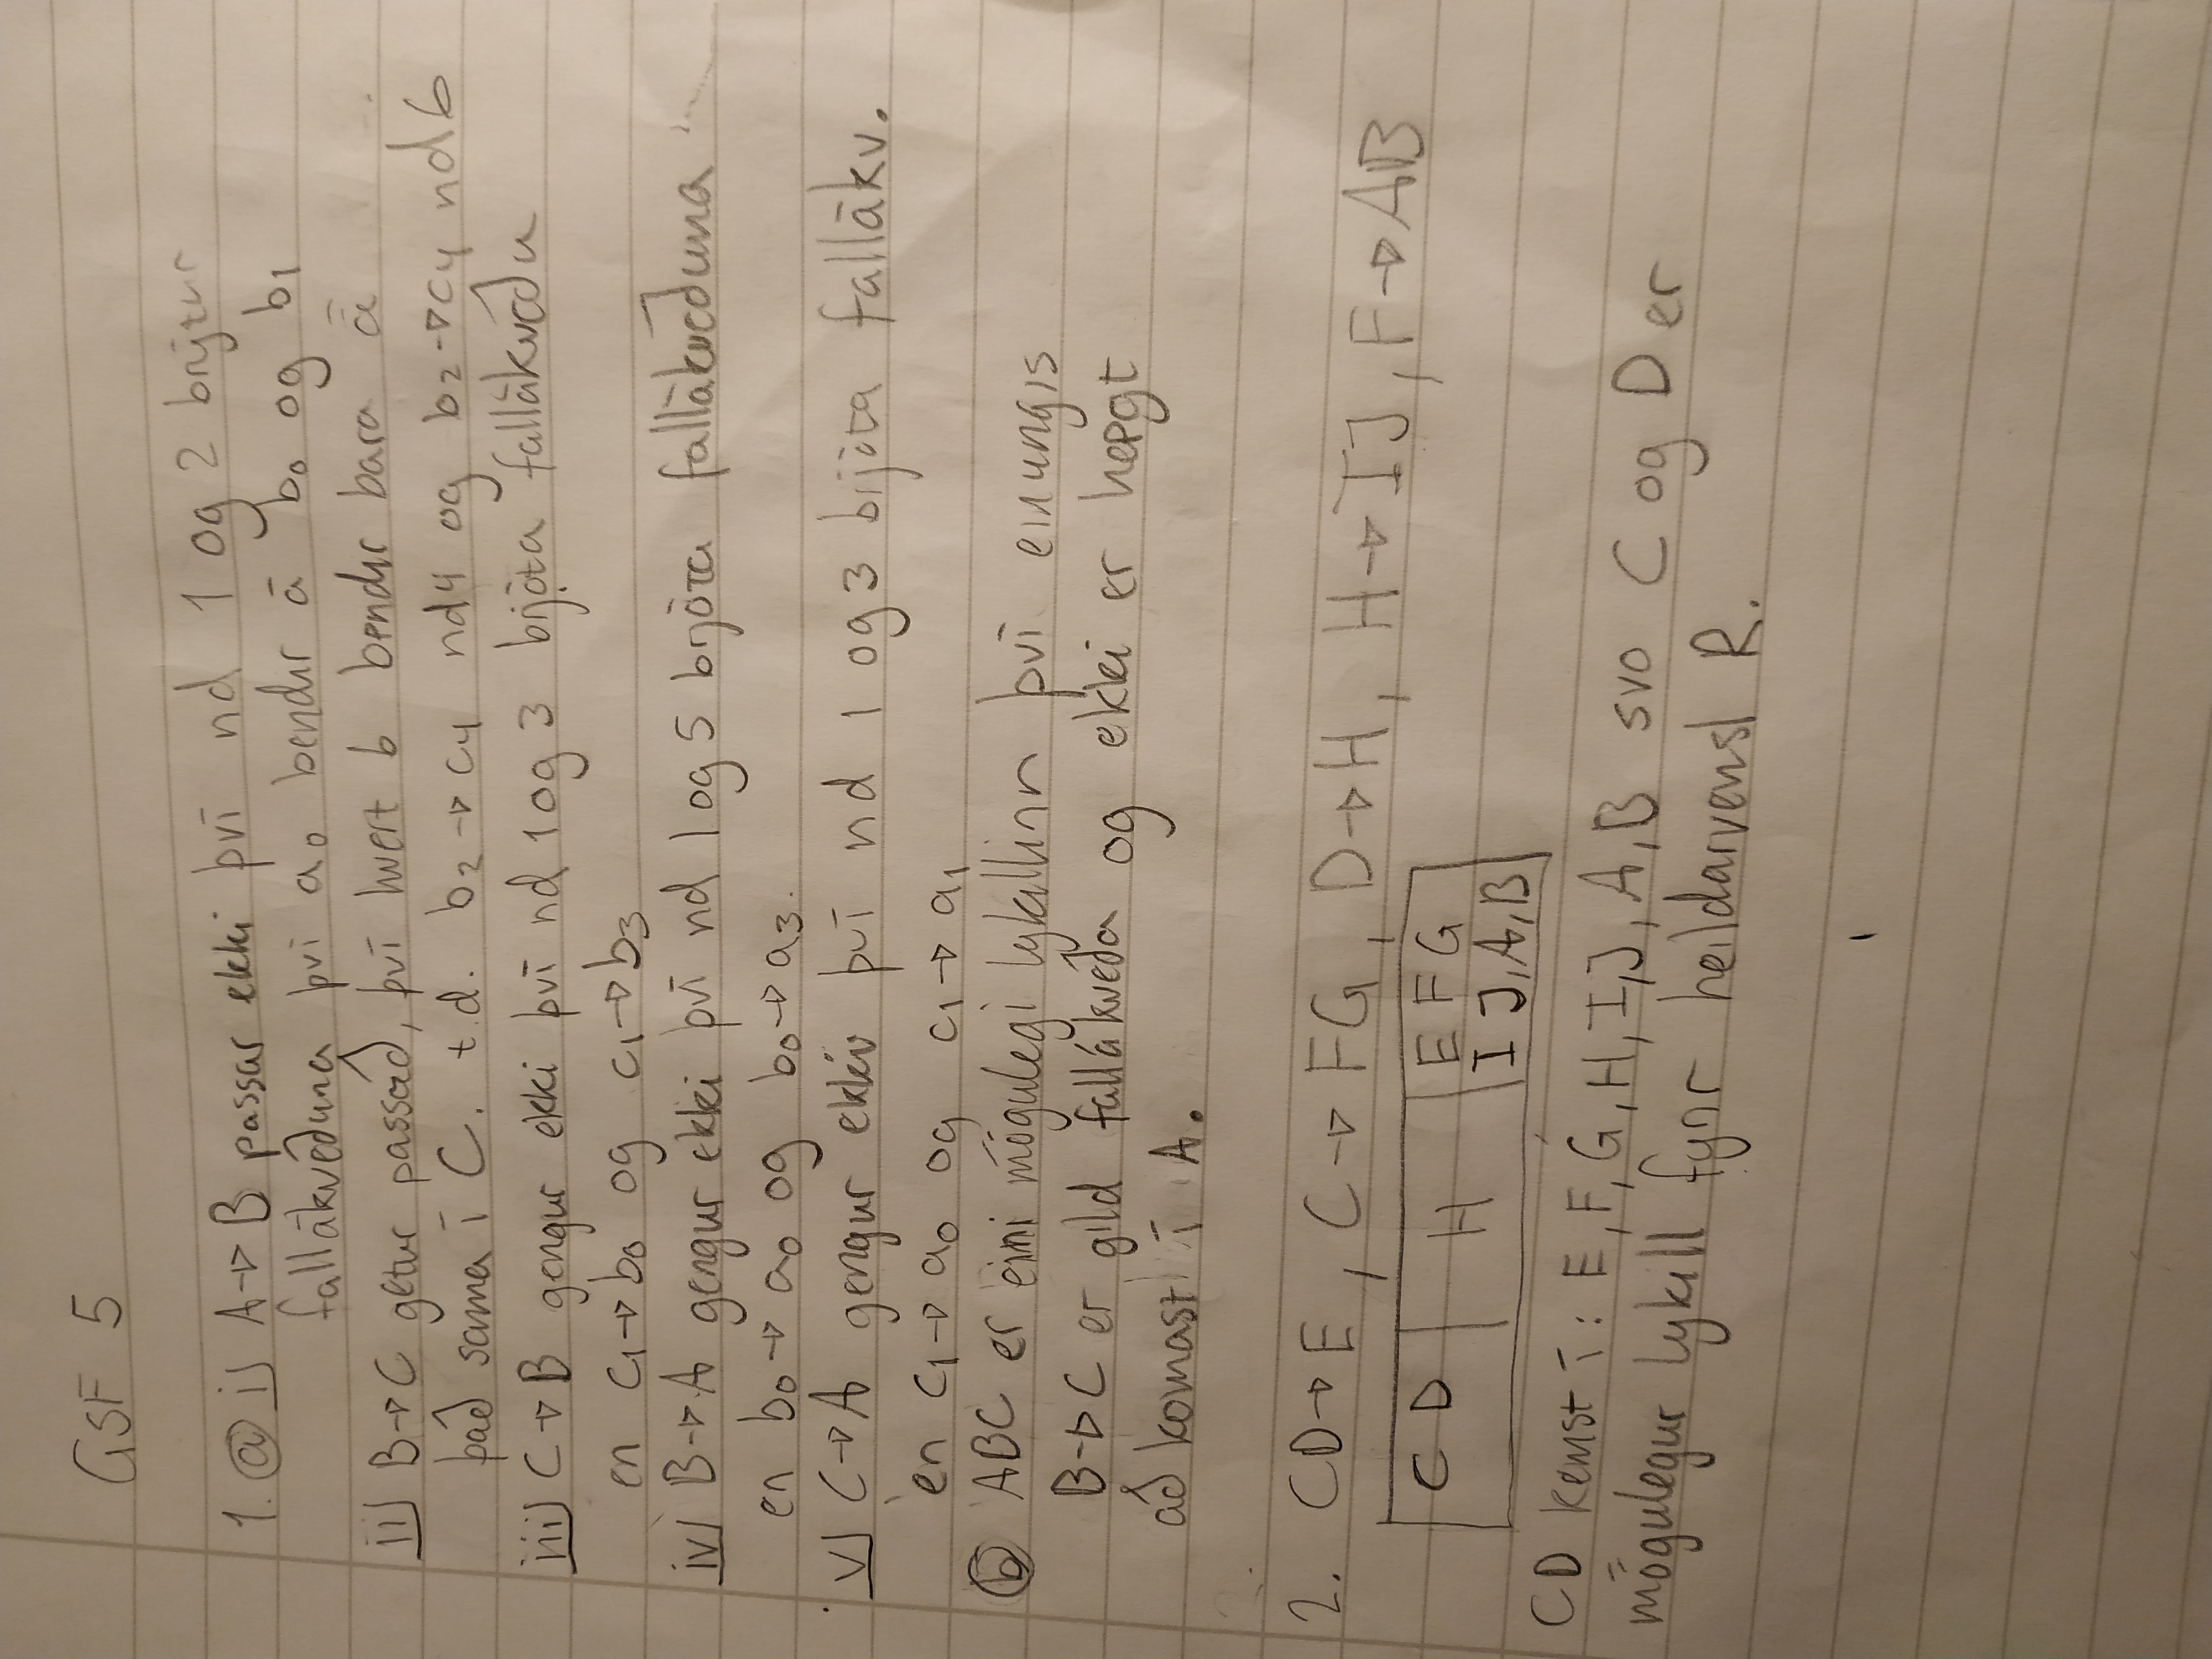 GSF 5
1. a i) A→B passar ekki því nd 1 og 2 brýtur
fallákveðuna því a₀ bendir á b₀ og b₁
ii) B→C getur passað, því hvert b bendir bara á
það sama í C. t.d. b₂→c₄ nd4 og b₂→c₄ nd6
iii) C→B gengur ekki því nd 1 og 3 brjóta fallákveðu
en c₁→b₀ og c₁→b₃
iv) B→A gengur ekki því nd 1 og 5 brjóta fallákveðuna
en b₀→a₀ og b₀→a₃.
v) C→A gengur ekki því nd 1 og 3 brjóta fallákv.
en c₁→a₀ og c₁→a₁
b ABC er eini mögulegi lykillinn því einungis
B→C er gild fallákveða og ekki er hægt
að komast í A.
2. CD→E, C→FG, D→H, H→IJ, F→AB
C D H E F G
I J, A, B
CD kemst í: E, F, G, H, I, J, A, B svo C og D er
mögulegur lykill fyrir heildarvensl R.